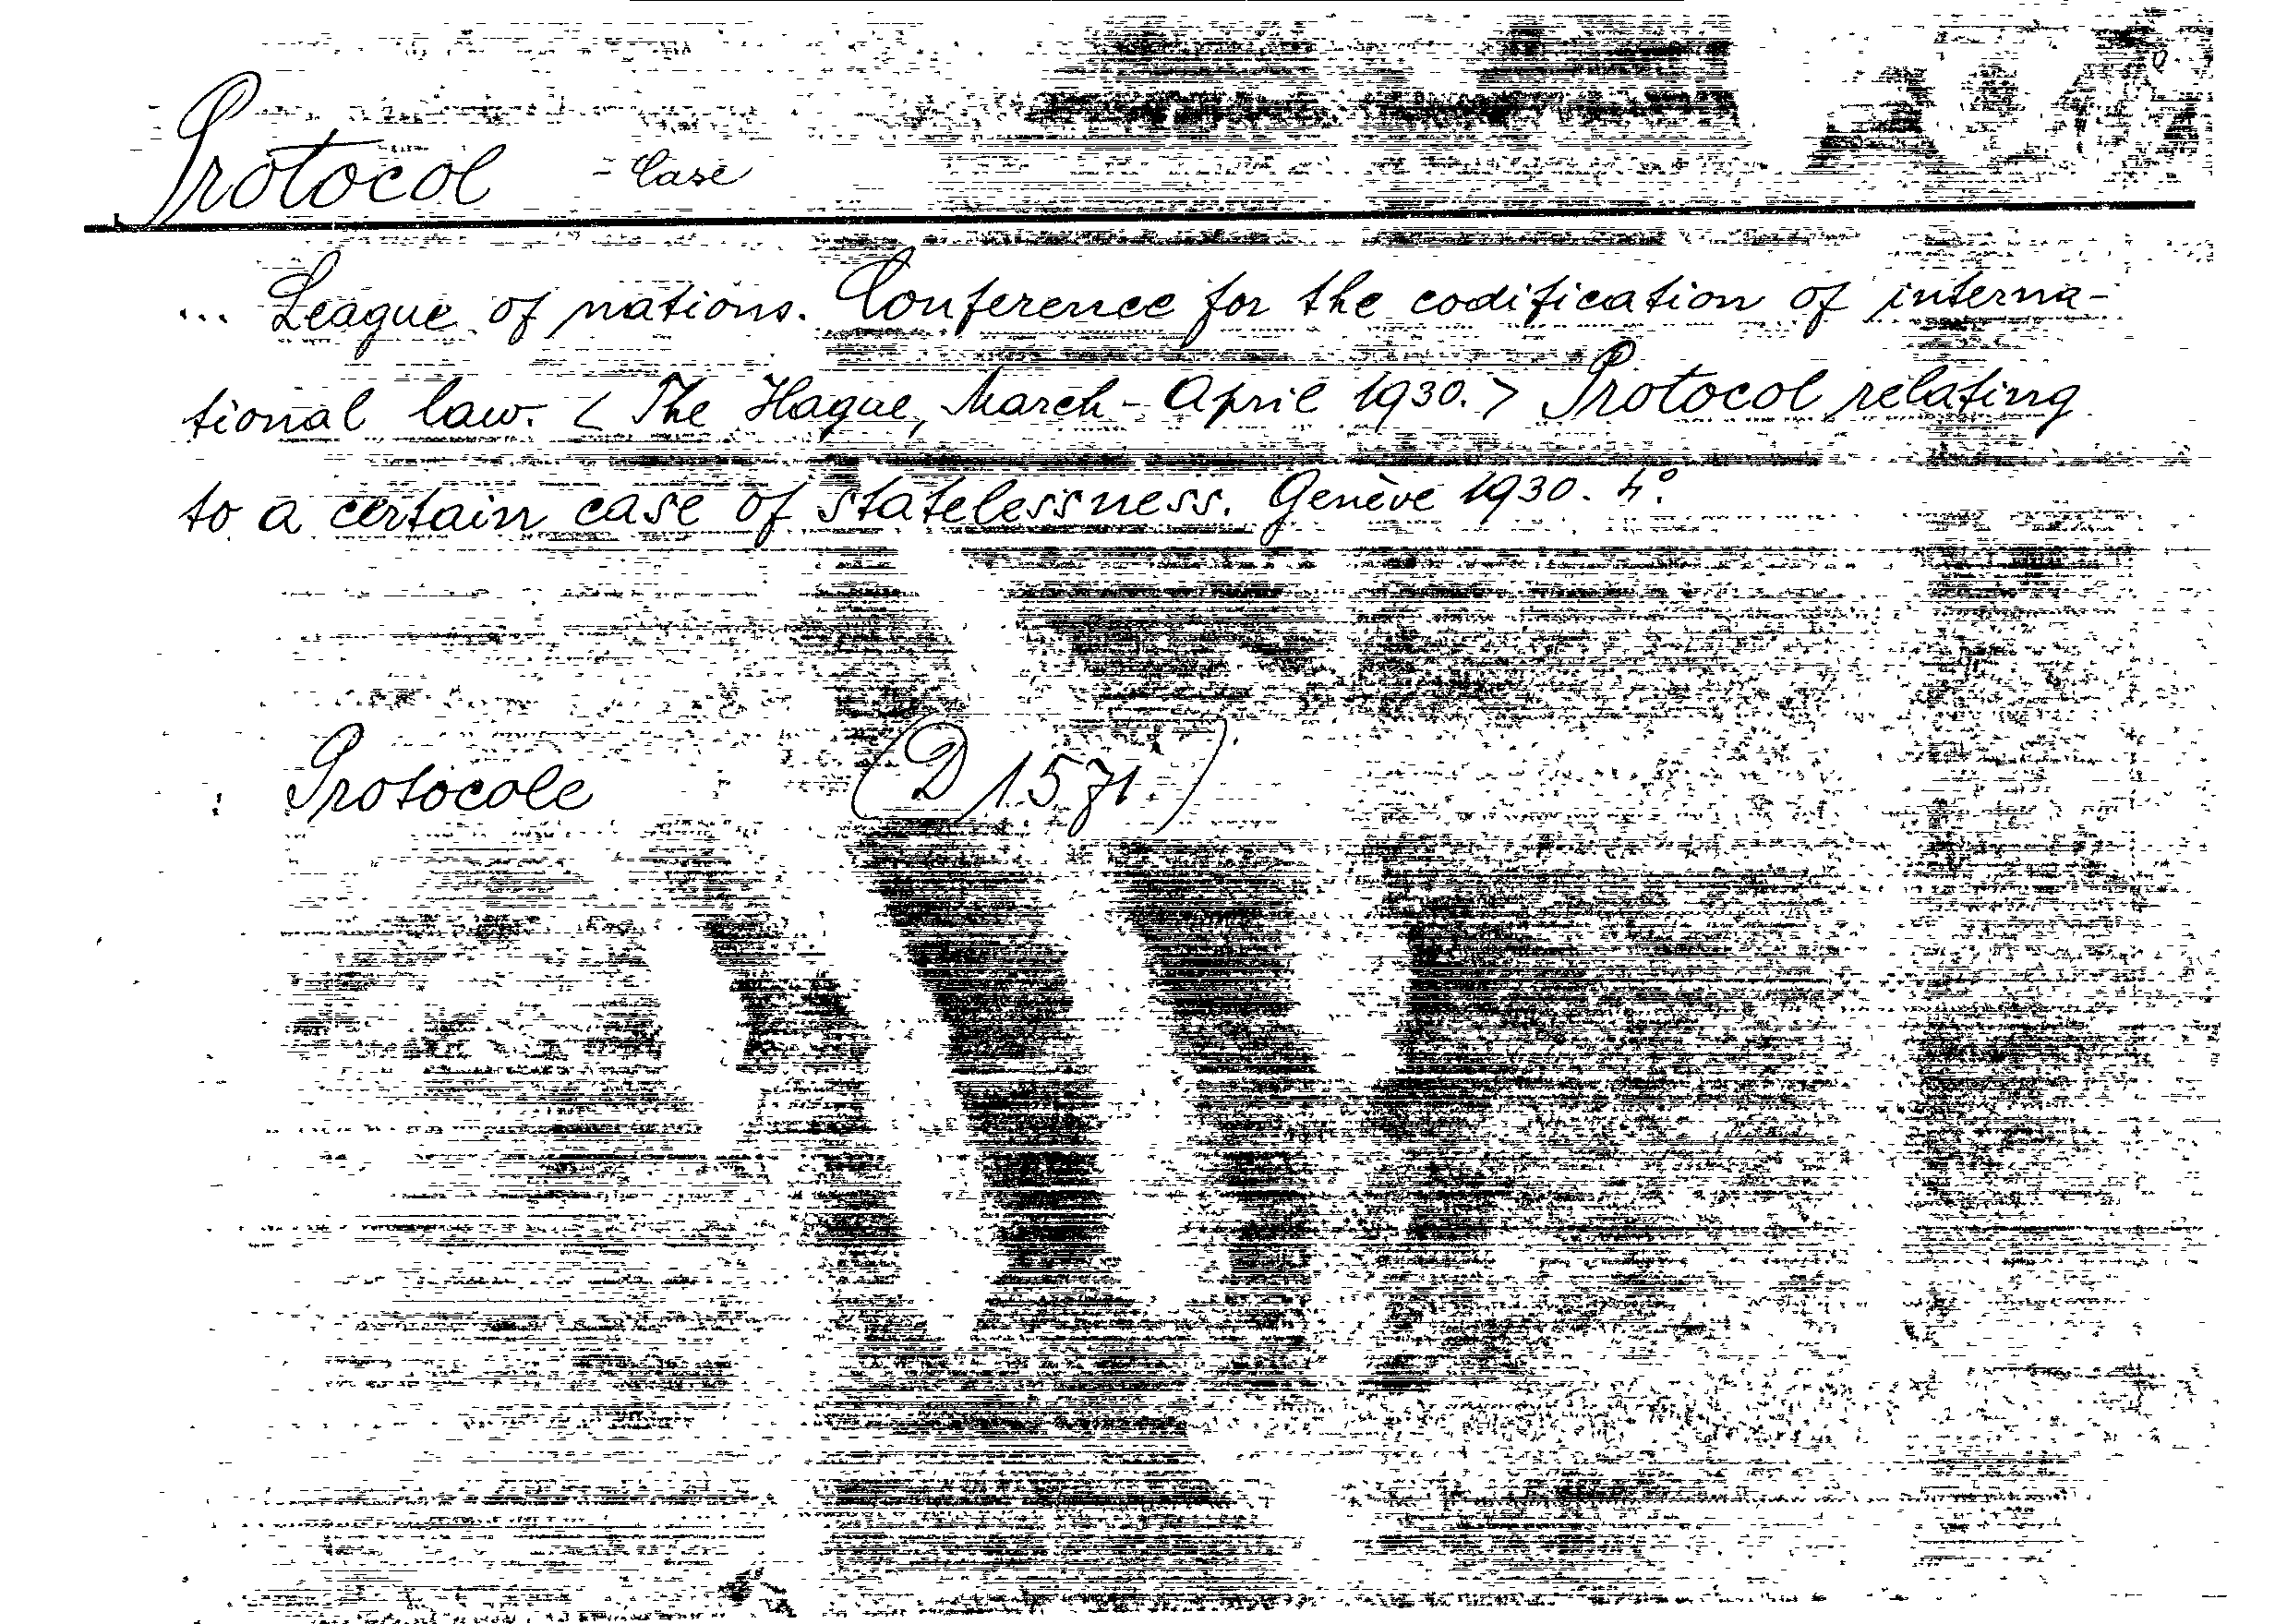 Protocol - Case
... League of nations. Conference for the codification of interna-
tional law. < The Hague, March - April 1930. > Protocol relating
to a certain case of statelessness. Genève 1930. 4°.
: Protocole (D 1571.)